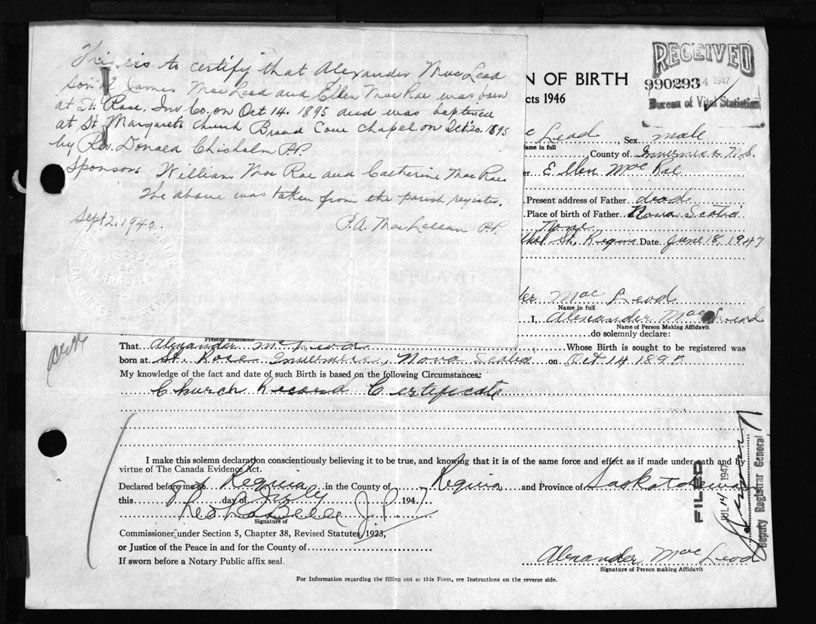 This is to certify that Alexander MacLeod
son of James MacLeod and Ellen MacRae was born
at St. Rose, Inv. Co. on Oct 14. 1895 and was baptised
at St. Margaret's Church Broad Cove Chapel on Oct 20. 1895
by Rev. Donald Chisholm P.P.
Sponsors William MacRae and Catherine MacRae
The above was taken from the parish register.
Sept 2. 1940.
P.A. MacLellan P.P.
N OF BIRTH
cts 1946
RECEIVED
990293
4 1947
Bureau of Vital Statistics
c Leod, Sex male
ame in full
County of Inverness N.S.
er. Ellen MacRae
Present address of Father dead
Place of birth of Father Nova Scotia
None
St. Regina Date June 18, 1947
der MacLeod
Name in full
I, Alexander MacLeod
Name of Person Making Affidavit
do solemnly declare:
That Alexander McLeod Whose Birth is sought to be registered was
born at St. Rose, Inverness, Nova Scotia on Oct 14 1895
My knowledge of the fact and date of such Birth is based on the following Circumstances:
Church Record Certificate
I make this solemn declaration conscientiously believing it to be true, and knowing that it is of the same force and effect as if made under oath and by
virtue of The Canada Evidence Act.
Declared before me at Regina in the County of Regina and Province of Saskatchewan
this day of July 1947
Leo LaBelle J.P.
Signature of
Commissioner, under Section 5, Chapter 38, Revised Statutes, 1923,
or Justice of the Peace in and for the County of
If sworn before a Notary Public affix seal.
Alexander MacLeod
Signature of Person making Affidavit
For Information regarding the filling out of this Form, see Instructions on the reverse side.
FILED
JUL 14 1947
Deputy Registrar General